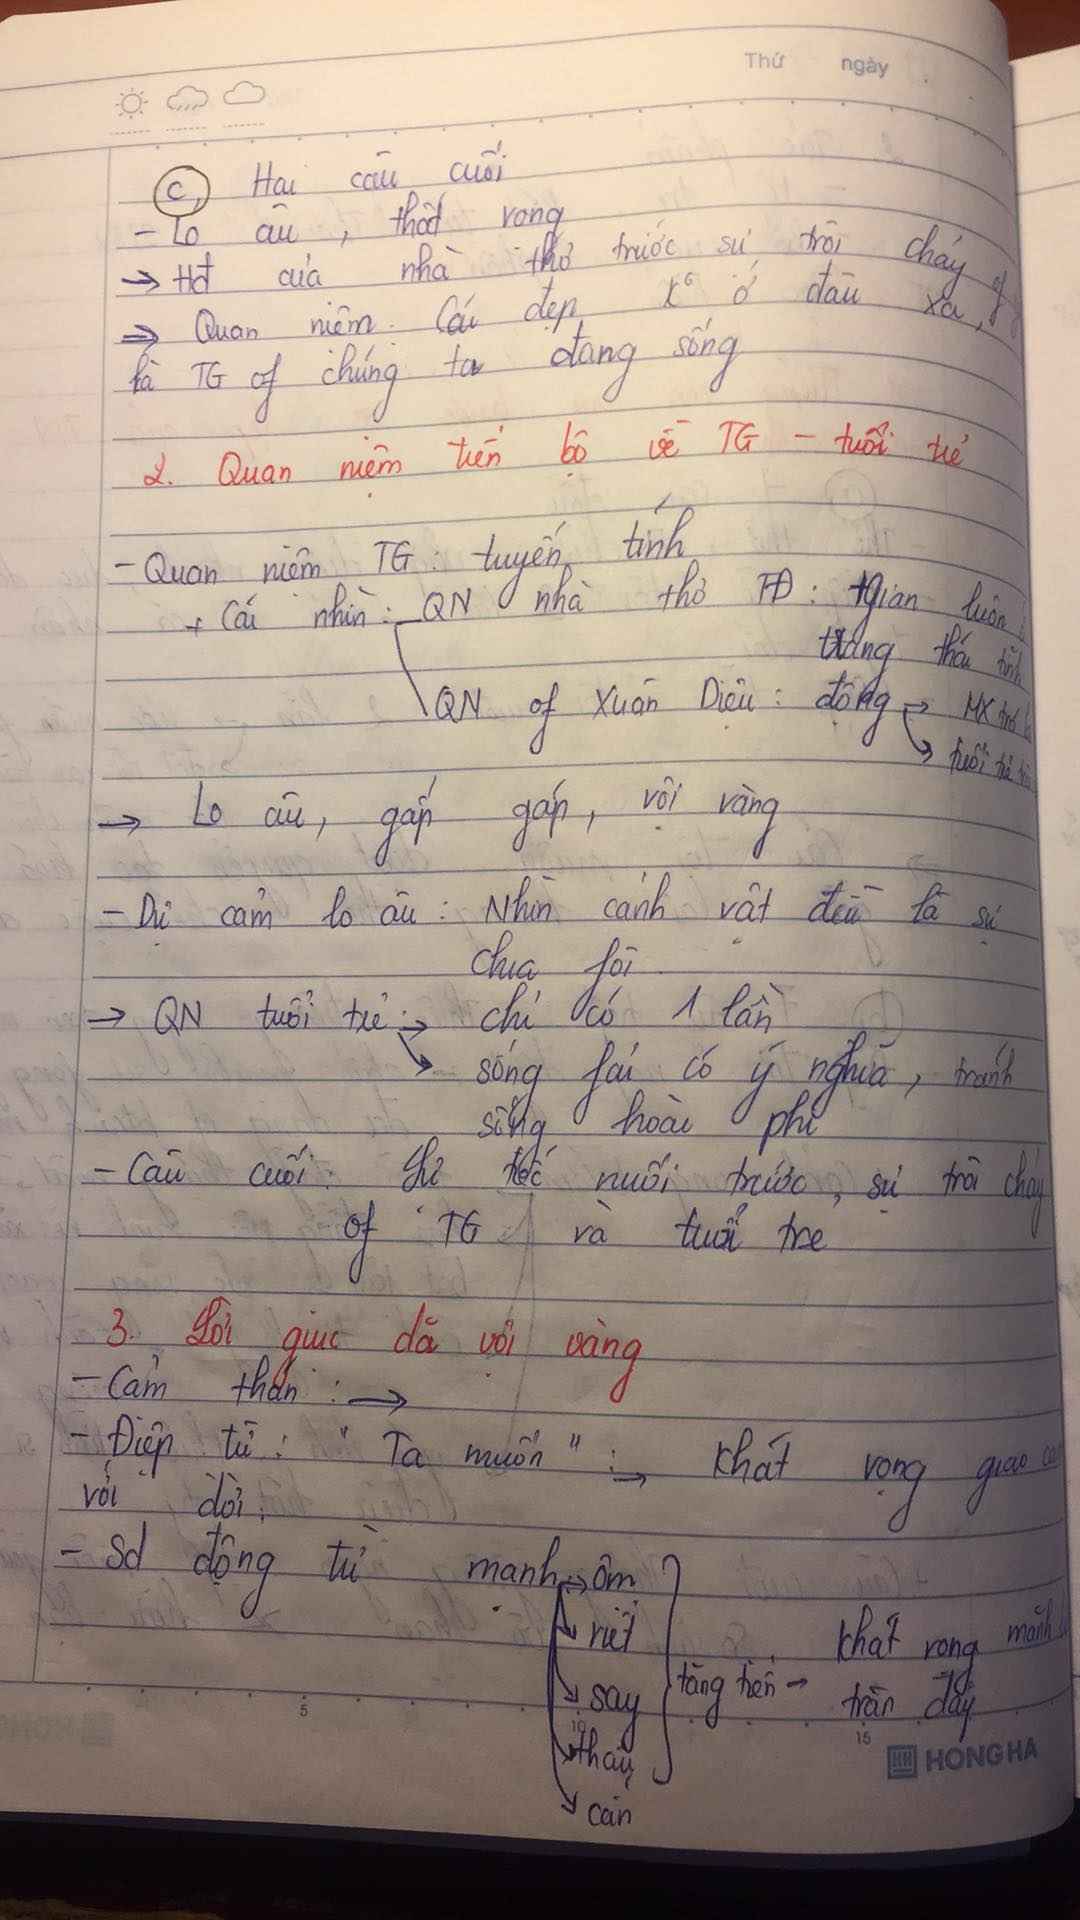 Thứ ngày
c, Hai câu cuối
- Lo âu, thất vọng
→ Hđ của nhà thơ trước sự trôi chảy of
⇒ Quan niệm: Cái đẹp k° ở đâu xa,
là TG of chúng ta đang sống
2. Quan niệm tiến bộ về TG - tuổi trẻ
- Quan niệm TG: tuyến tính
+ Cái nhìn: QN nhà thơ TĐ: tgian luôn
trạng thái tĩnh
QN of Xuân Diệu: động → MX
→ tuổi trẻ
→ Lo âu, gấp gáp, vội vàng
- Dự cảm lo âu: Nhìn cảnh vật đều là sự
chia fôi
→ QN tuổi trẻ: → chỉ có 1 lần
→ sống fải có ý nghĩa, tránh
sống hoài phí
- Câu cuối: Sự tiếc nuối trước sự trôi chảy
of TG và tuổi tre
3. Lời giục dã vội vàng
- Cảm thán: →
- Điệp từ: "Ta muốn": → Khát vọng giao
với đời.
- Sd động từ mạnh → ôm
riết
→ say
tăng tiến → khát vọng mãnh
tràn đầy
→ thâu
→ cắn
5 10 15
HH HONG HA